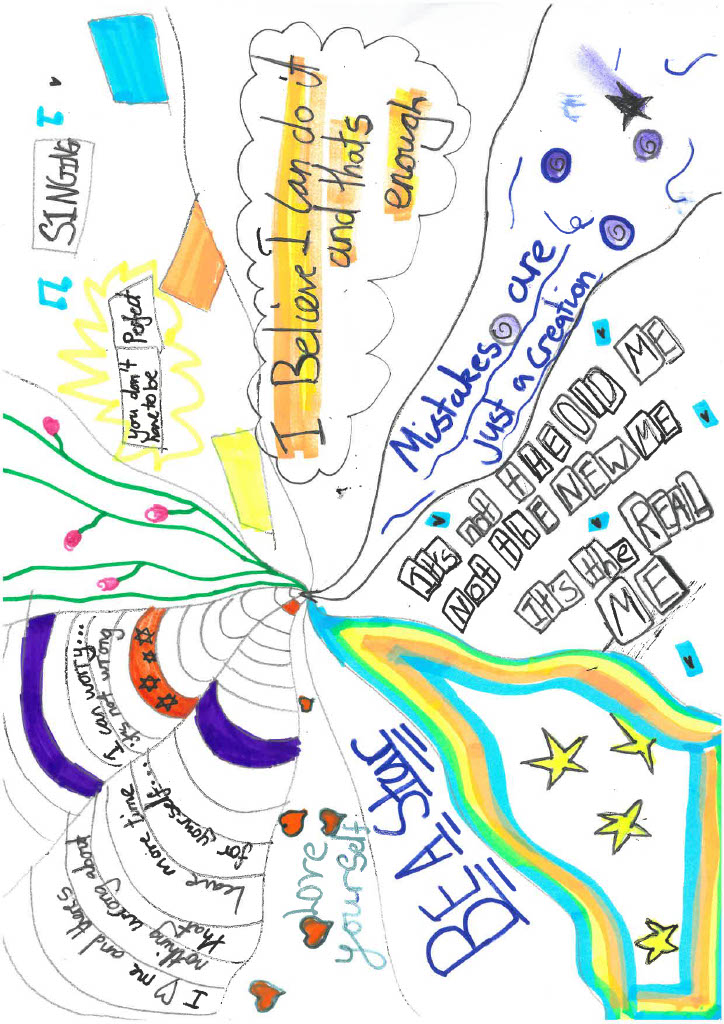 I Believe I Can do it
and thats
enough
Mistakes are
just a creation
It's not THE OlD ME
Not the NEW ME
It's the REAL
ME
BE A STAR
Love
yourself
SINGING
you don't
have to be
Perfect
I can worry...
it's not wrong
Leave more time
for yourself...
I ♡ me and
nothing wrong about
that